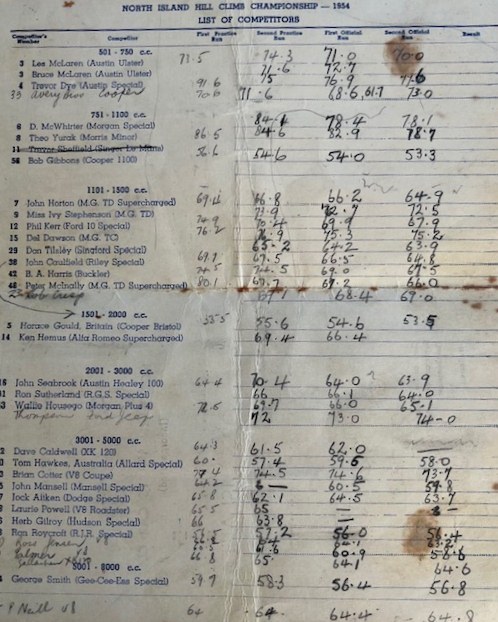 NORTH ISLAND HILL CLIMB CHAMPIONSHIP — 1954
LIST OF COMPETITORS
Competitor's Number Competitor First Practice Run Second Practice Run First Official Run Second Official Run Result
501 - 750 c.c.
3 Les McLaren (Austin Ulster) 71.5 74.3 71.0 70.0
3 Bruce McLaren (Austin Ulster) 71.6 72.7
4 Trevor Dye (Austin Special) 91.6 75 76.9 77.6
33 Cooper 70.6 71.6 68.6, 61.7 73.0
751-1100 c.c.
6 D. McWhirter (Morgan Special) 84.1 78.4 78.1
8 Theo Yurak (Morris Minor) 86.5 84.6 82.9 78.7
11 Trevor Sheffield (Singer Le Mans)
58 Bob Gibbons (Cooper 1100) 56.6 54.6 54.0 53.3
1101 - 1500 c.c.
7 John Horton (M.G. TD Supercharged) 69.4 66.8 66.2 64.9
9 Miss Ivy Stephenson (M.G. TD) 73.9 72.7 72.5
12 Phil Kerr (Ford 10 Special) 74.9 70.4 69.9 67.9
15 Del Dawson (M.G. TC) 76.2 76.9 75.3 75.2
29 Don Tilsley (Singford Special) 65.2 64.2 63.9
38 John Caulfield (Riley Special) 69.7 67.5 66.5 64.8
42 B. A. Harris (Buckler) 74.5 74.5 69.0 67.5
48 Peter McInally (M.G. TD Supercharged) 80.1 67.7 67.2 66.0
67.1 68.4 69.0
1501 - 2000 c.c.
5 Horace Gould, Britain (Cooper Bristol) 55.5 55.6 54.6 53.5
14 Ken Hemus (Alfa Romeo Supercharged) 69.4 66.4
2001 - 3000 c.c.
16 John Seabrook (Austin Healey 100) 64.4 70.4 64.0 63.9
Ron Sutherland (R.G.S. Special) 66 66.1 64.0
Wallie Housego (Morgan Plus 4) 72.5 69.7 66.0 65.1
Thompson Ford Jeep 72 73.0 74-0
3001 - 5000 c.c.
Dave Caldwell (XK 120) 64.3 61.5 62.0
Tom Hawkes, Australia (Allard Special) 60. 57.4 59.5 58.0
Brian Cotter (V8 Coupe) 77.4 74.5 74.6 73.7
John Mansell (Mansell Special) 64.2 60.5 59.8
Jock Aitken (Dodge Special) 65.8 62.1 64.5 63.7
Laurie Powell (V8 Roadster) 65.5 65 —
Herb Gilroy (Hudson Special) 66 63.8 —
Ron Roycroft (R.J.R. Special) 57.2 56.0 56.4
Ross Jensen V8 63.2
V8 60.5 61.6 60.9 58.6
66.8 65 64.1 64.6
5001 - 8000 c.c.
George Smith (Gee-Cee-Ess Special) 59.7 58.3 56.4 56.8
Neill V8 64 64 64.4 64.8